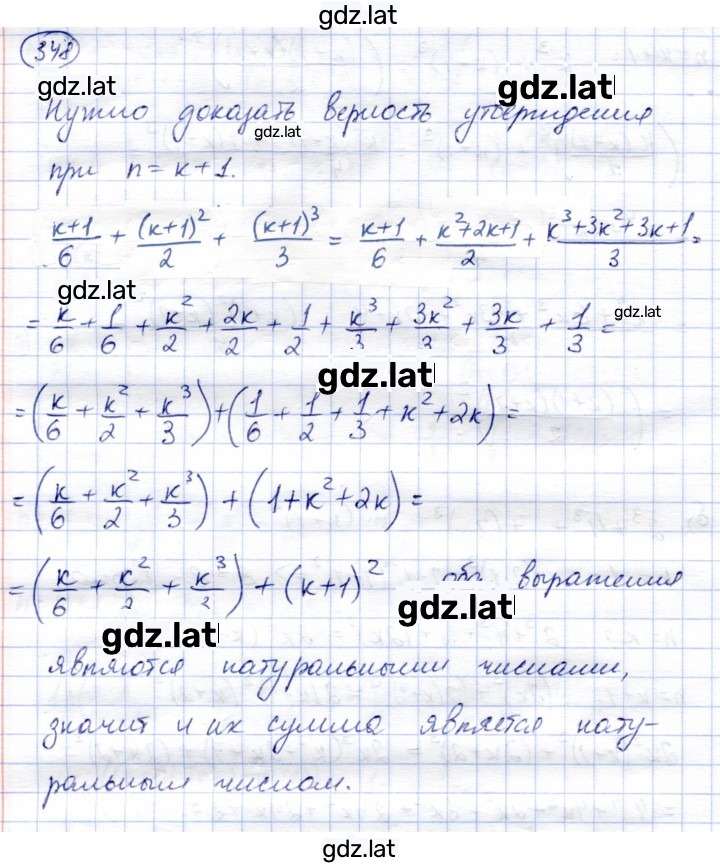 gdz.lat
348
gdz.lat
gdz.lat
Нужно доказать верность утверждения
gdz.lat
при n = к + 1.
(к+1)/6 + (к+1)²/2 + (к+1)³/3 = (к+1)/6 + (к²+2к+1)/2 + (к³+3к²+3к+1)/3 =
gdz.lat
gdz.lat
= к/6 + 1/6 + к²/2 + 2к/2 + 1/2 + к³/3 + 3к²/3 + 3к/3 + 1/3 =
gdz.lat
= (к/6 + к²/2 + к³/3) + (1/6 + 1/2 + 1/3 + к² + 2к) =
= (к/6 + к²/2 + к³/3) + (1 + к² + 2к) =
= (к/6 + к²/2 + к³/3) + (к+1)² оба выражения
gdz.lat
gdz.lat
являются натуральными числами,
значит и их сумма является нату-
ральным числом.
gdz.lat